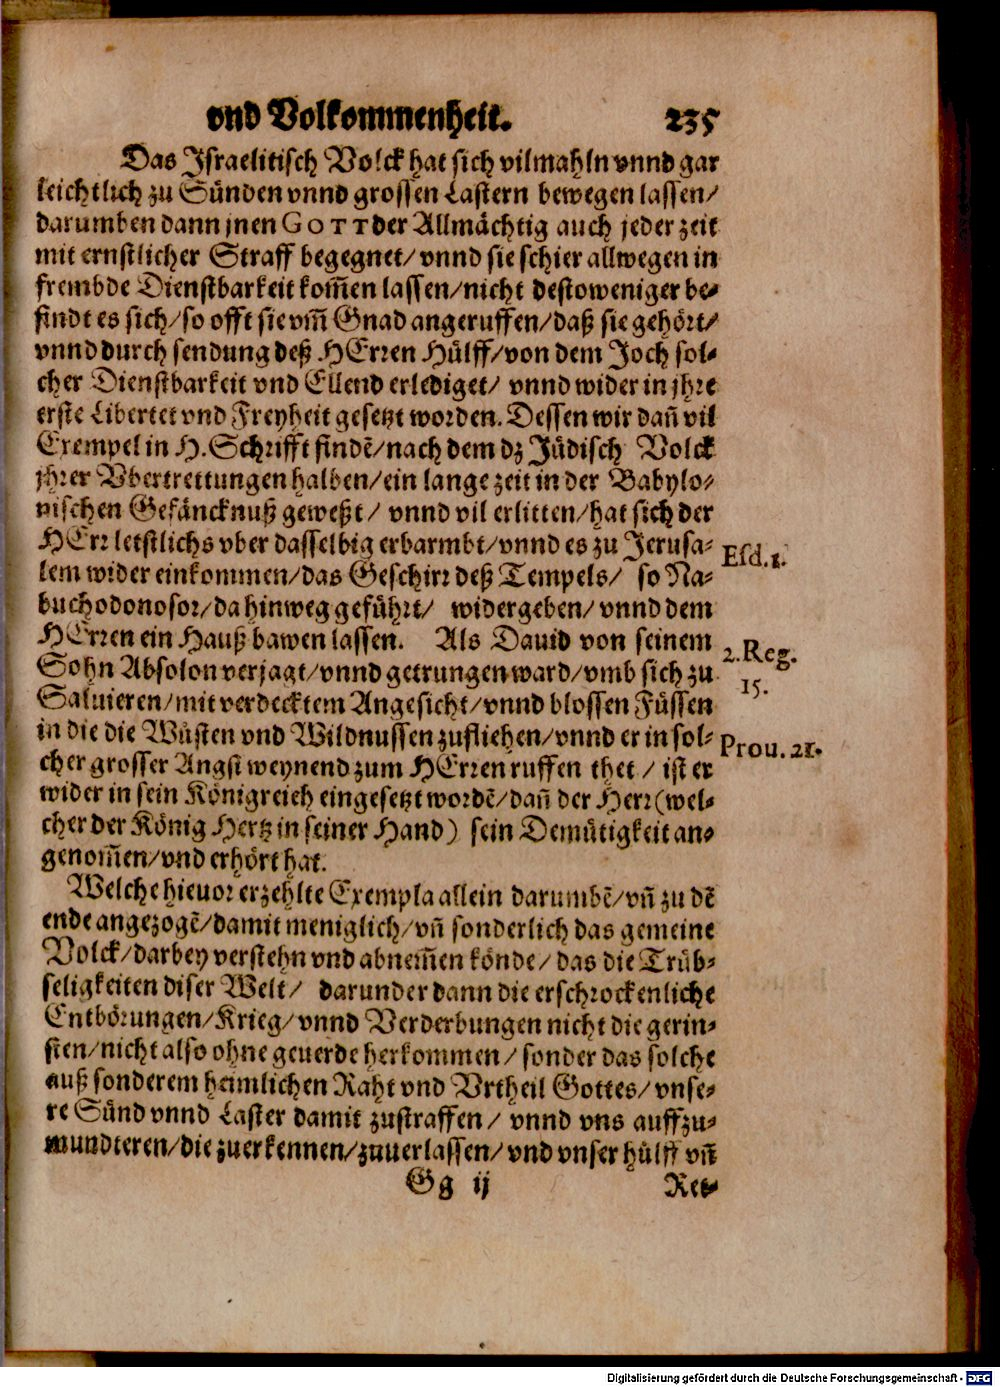 vnd Volkommenheit. 235
Das Israelitisch Volck hat sich vilmahln vnnd gar
leichtlich zu Sünden vnnd grossen Lastern bewegen lassen/
darumben dann jnen GOTT der Allmächtig auch jeder zeit
mit ernstlicher Straff begegnet/ vnnd sie schier allwegen in
frembde Dienstbarkeit kom̃en lassen/ nicht destoweniger be-
findt es sich/ so offt sie vm̃ Gnad angeruffen/ daß sie gehört/
vnnd durch sendung deß HErren Hülff/ von dem Joch sol-
cher Dienstbarkeit vnd Ellend erlediget/ vnnd wider in jhre
erste Libertet vnd Freyheit gesetzt worden. Dessen wir dañ vil
Exempel in H. Schrifft findẽ/ nach dem dz Jüdisch Volck
jhrer Vbertrettungen halben/ ein lange zeit in der Babylo-
nischen Gefäncknuß geweßt/ vnnd vil erlitten/ hat sich der
HErr letstlichs vber dasselbig erbarmbt/ vnnd es zu Jerusa-
Esd. 1.
lem wider einkommen/ das Geschirr deß Tempels/ so Na-
buchodonosor/ da hinweg geführt/ widergeben/ vnnd dem
HErren ein Hauß bawen lassen. Als Dauid von seinem
2. Reg.
Sohn Absolon verjagt/ vnnd getrungen ward/ vmb sich zu
15.
Saluieren/ mit verdecktem Angesicht/ vnnd blossen Füssen
in die die Wüsten vnd Wildnussen zufliehen/ vnnd er in sol-
Prou. 21.
cher grosser Angst weynend zum HErren ruffen thet/ ist er
wider in sein Königreich eingesetzt wordẽ/ dañ der Herr (wel-
cher der König Hertz in seiner Hand) sein Demütigkeit an-
genom̃en/ vnd erhört hat.
Welche hieuor erzehlte Exempla allein darumbẽ/ vñ zu dẽ
ende angezogẽ/ damit meniglich/ vñ sonderlich das gemeine
Volck/ darbey verstehn vnd abnem̃en könde/ das die Trüb-
seligkeiten diser Welt/ darunder dann die erschrockenliche
Entbörungen/ Krieg/ vnnd Verderbungen nicht die gerin-
sten/ nicht also ohne geuerde herkommen/ sonder das solche
auß sonderem heimlichen Raht vnd Vrtheil Gottes/ vnse-
re Sünd vnnd Laster damit zustraffen/ vnnd vns auffzu-
mundteren/ die zuerkennen/ zuuerlassen/ vnd vnser hülff vñ
Gg ij Ret-
Digitalisierung gefördert durch die Deutsche Forschungsgemeinschaft - DFG